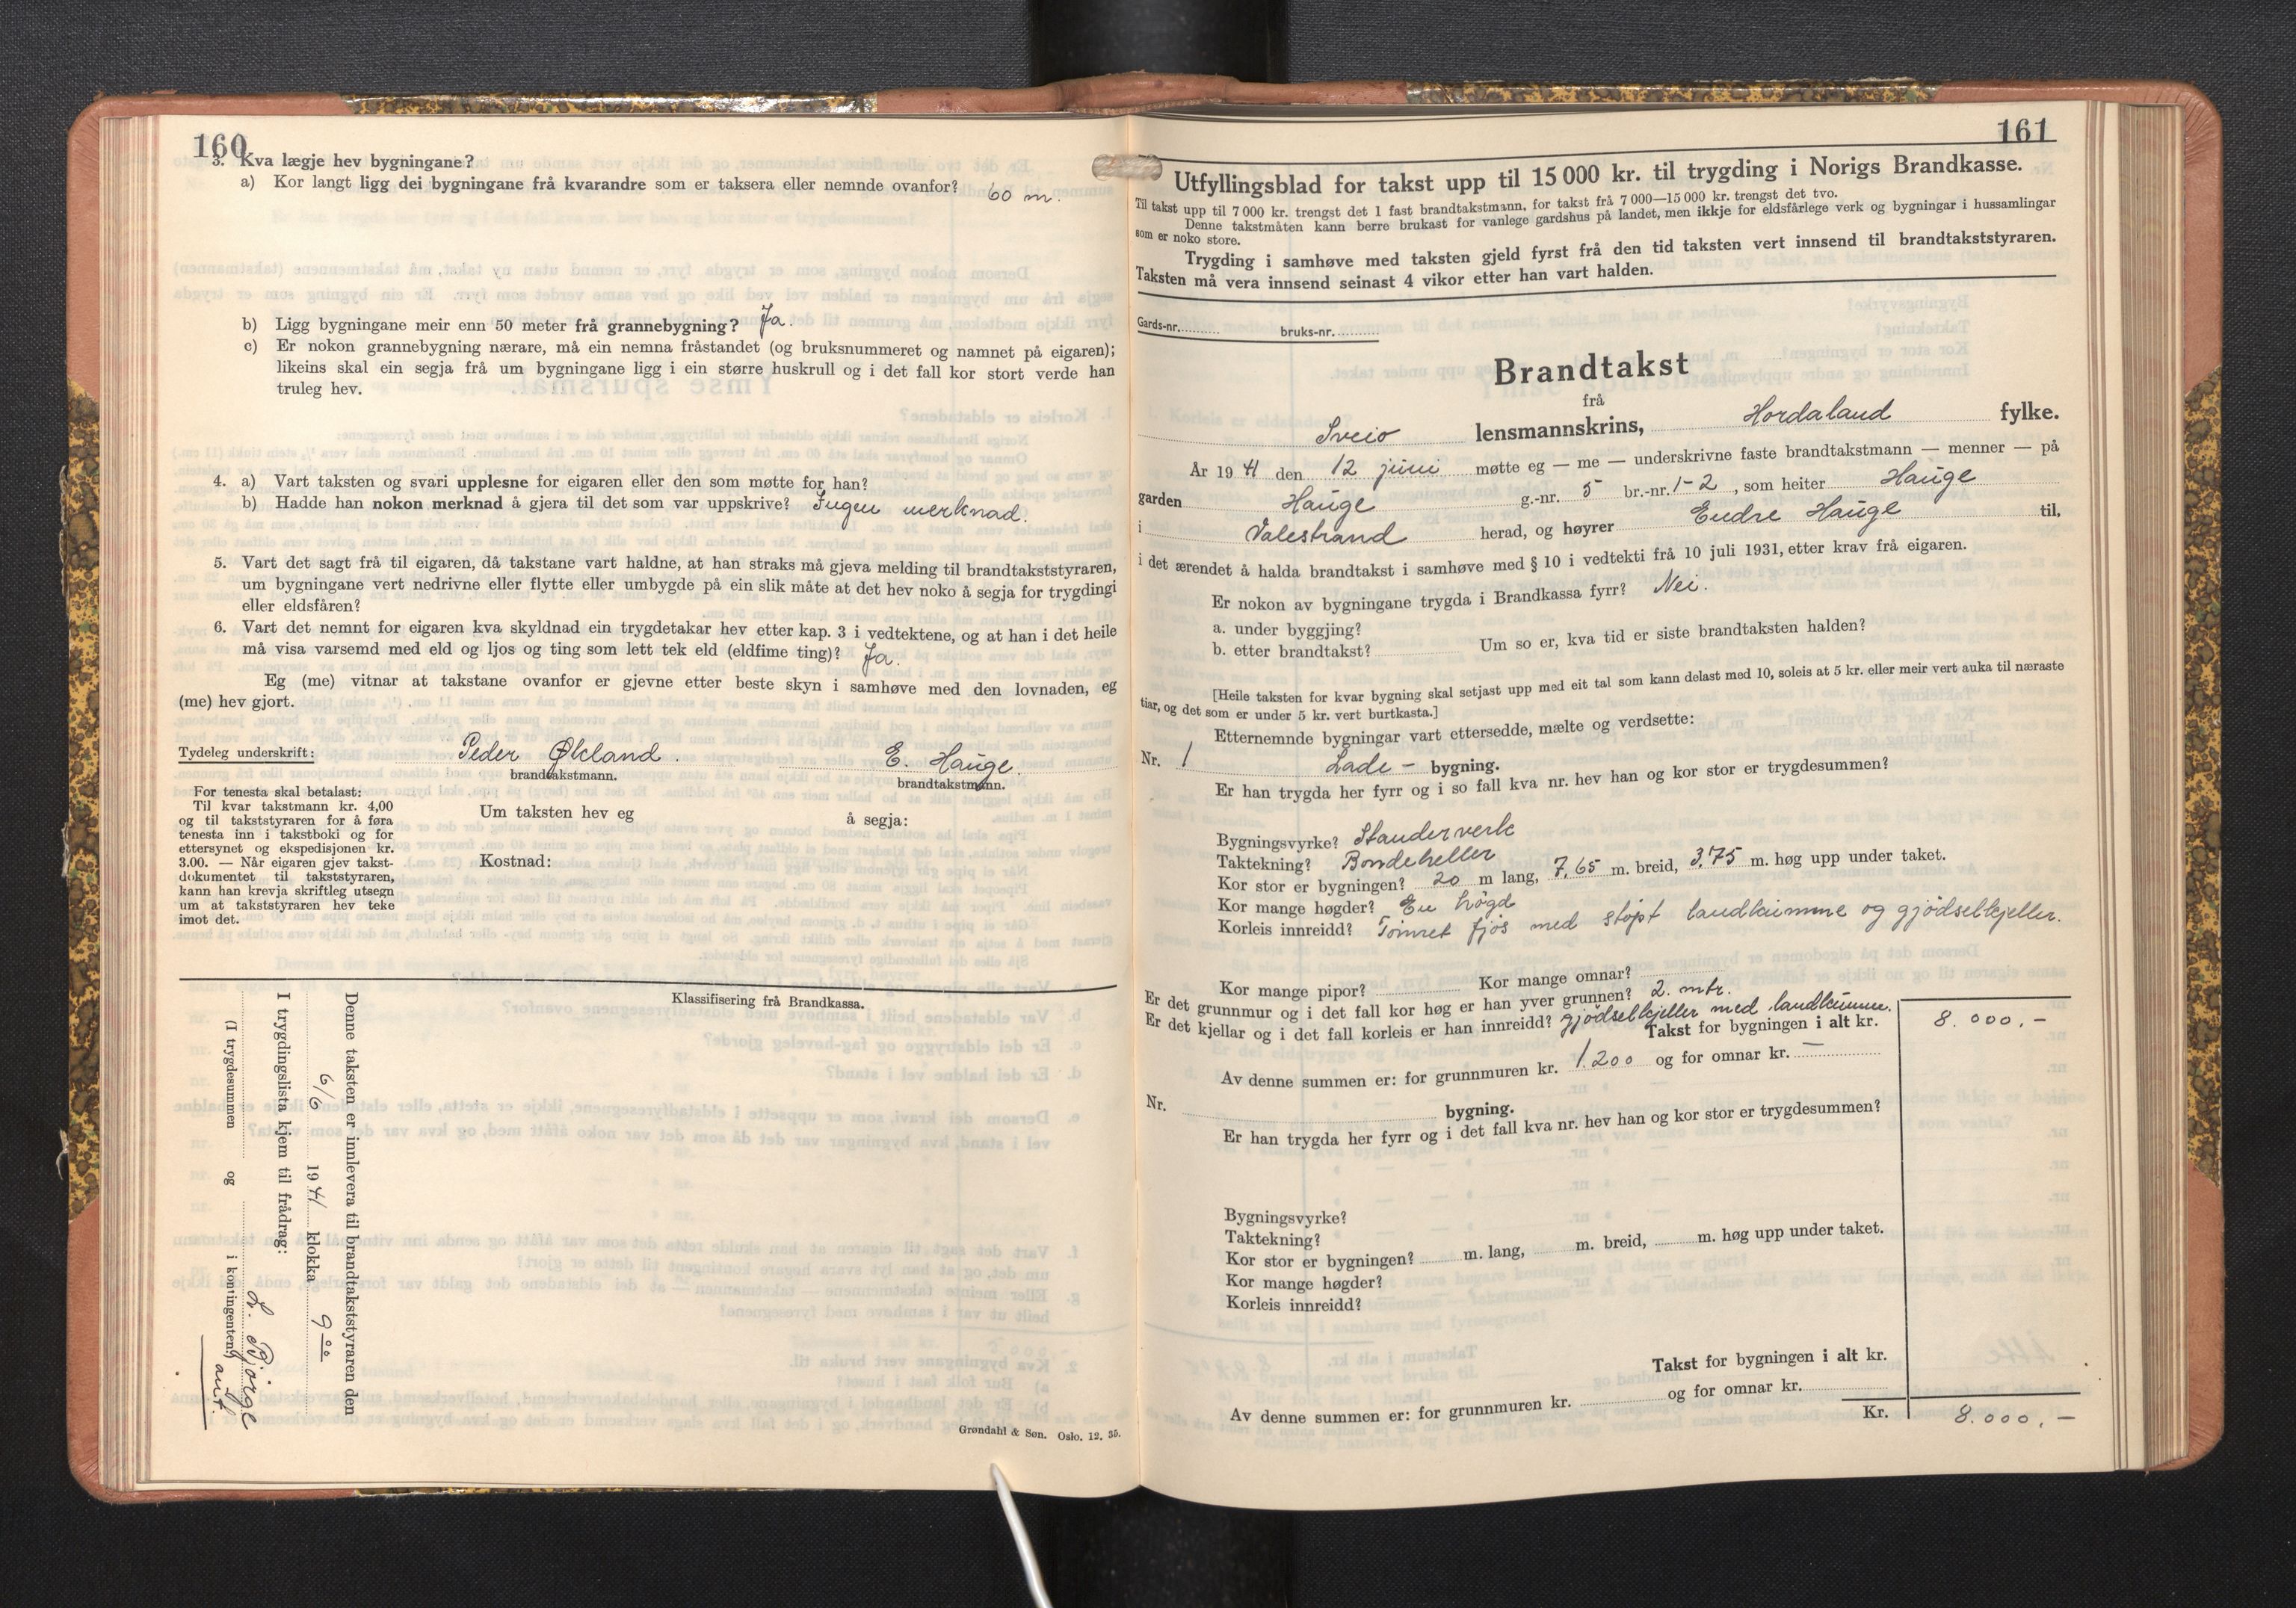 160
3. Kva lægje hev bygningane?
a) Kor langt ligg dei bygningane frå kvarandre som er taksera eller nemnde ovanfor? 60 m.
b) Ligg bygningane meir enn 50 meter frå grannebygning? Ja.
c) Er nokon grannebygning nærare, må ein nemna fråstandet (og bruksnummeret og namnet på eigaren);
likeins skal ein segja frå um bygningane ligg i ein større huskrull og i det fall kor stort verde han
truleg hev.
4. a) Vart taksten og svari upplesne for eigaren eller den som møtte for han?
b) Hadde han nokon merknad å gjera til det som var uppskrive? Ingen merknad.
5. Vart det sagt frå til eigaren, då takstane vart haldne, at han straks må gjeva melding til brandtakststyraren,
um bygningane vert nedrivne eller flytte eller umbygde på ein slik måte at det hev noko å segja for trygdingi
eller eldsfåren?
6. Vart det nemnt for eigaren kva skyldnad ein trygdetakar hev etter kap. 3 i vedtektene, og at han i det heile
må visa varsemd med eld og ljos og ting som lett tek eld (eldfime ting)? Ja.
Eg (me) vitnar at takstane ovanfor er gjevne etter beste skyn i samhøve med den lovnaden, eg
(me) hev gjort.
Tydeleg underskrift: Peder Økland. E. Hauge.
brandtakstmann. brandtakstmann.
For tenesta skal betalast:
Til kvar takstmann kr. 4,00
og til takststyraren for å føra
tenesta inn i takstboki og for
ettersynet og ekspedisjonen kr.
3.00. — Når eigaren gjev takst-
dokumentet til takststyraren,
kann han krevja skriftleg utsegn
um at takststyraren hev teke
imot det.
Um taksten hev eg å segja:
Kostnad:
Klassifisering frå Brandkassa.
Denne taksten er innlevera til brandtakststyraren den
6/6 1941 klokka 9⁰⁰
I trygdingslista kjem til frådrag:
L. Bjørge
(I trygdesummen og i kontingenten)
aut.
Grøndahl & Søn. Oslo. 12. 35.
161
Utfyllingsblad for takst upp til 15 000 kr. til trygding i Norigs Brandkasse.
Til takst upp til 7 000 kr. trengst det 1 fast brandtakstmann, for takst frå 7 000—15 000 kr. trengst det tvo.
Denne takstmåten kann berre brukast for vanlege gardshus på landet, men ikkje for eldsfårlege verk og bygningar i hussamlingar
som er noko store.
Trygding i samhøve med taksten gjeld fyrst frå den tid taksten vert innsend til brandtakststyraren.
Taksten må vera innsend seinast 4 vikor etter han vart halden.
Gards-nr. bruks-nr.
Brandtakst
frå
Sveio lensmannskrins, Hordaland fylke.
År 1941 den 12 juni møtte eg — me — underskrivne faste brandtakstmann — menner — på
garden Hauge g.-nr. 5 br.-nr. 1-2, som heiter Hauge
i Valestrand herad, og høyrer Endre Hauge til,
i det ærendet å halda brandtakst i samhøve med § 10 i vedtekti frå 10 juli 1931, etter krav frå eigaren.
Er nokon av bygningane trygda i Brandkassa fyrr? Nei.
a. under byggjing?
b. etter brandtakst? Um so er, kva tid er siste brandtaksten halden?
[Heile taksten for kvar bygning skal setjast upp med eit tal som kann delast med 10, soleis at 5 kr. eller meir vert auka til næraste
tiar, og det som er under 5 kr. vert burtkasta.]
Etternemnde bygningar vart ettersedde, mælte og verdsette:
Nr. 1 Lade - bygning.
Er han trygda her fyrr og i so fall kva nr. hev han og kor stor er trygdesummen?
Bygningsvyrke? Standerverk
Taktekning? Bondeheller
Kor stor er bygningen? 20 m lang, 7,65 m. breid, 3,75 m. høg upp under taket.
Kor mange høgder? En høgd
Korleis innreidd? Tømret fjøs med støpt landkumme og gjødselkjeller.
Kor mange pipor? Kor mange omnar?
Er det grunnmur og i det fall kor høg er han yver grunnen? 2. mtr.
Er det kjellar og i det fall korleis er han innreidd? gjødselkjeller med landkumme.
Takst for bygningen i alt kr. 8.000,-
Av denne summen er: for grunnmuren kr. 1.200 og for omnar kr. —
Nr. bygning.
Er han trygda her fyrr og i det fall kva nr. hev han og kor stor er trygdesummen?
Bygningsvyrke?
Taktekning?
Kor stor er bygningen? m. lang, m. breid, m. høg upp under taket.
Kor mange høgder?
Korleis innreidd?
Takst for bygningen i alt kr.
Av denne summen er: for grunnmuren kr. og for omnar kr.
Kr. 8.000,-